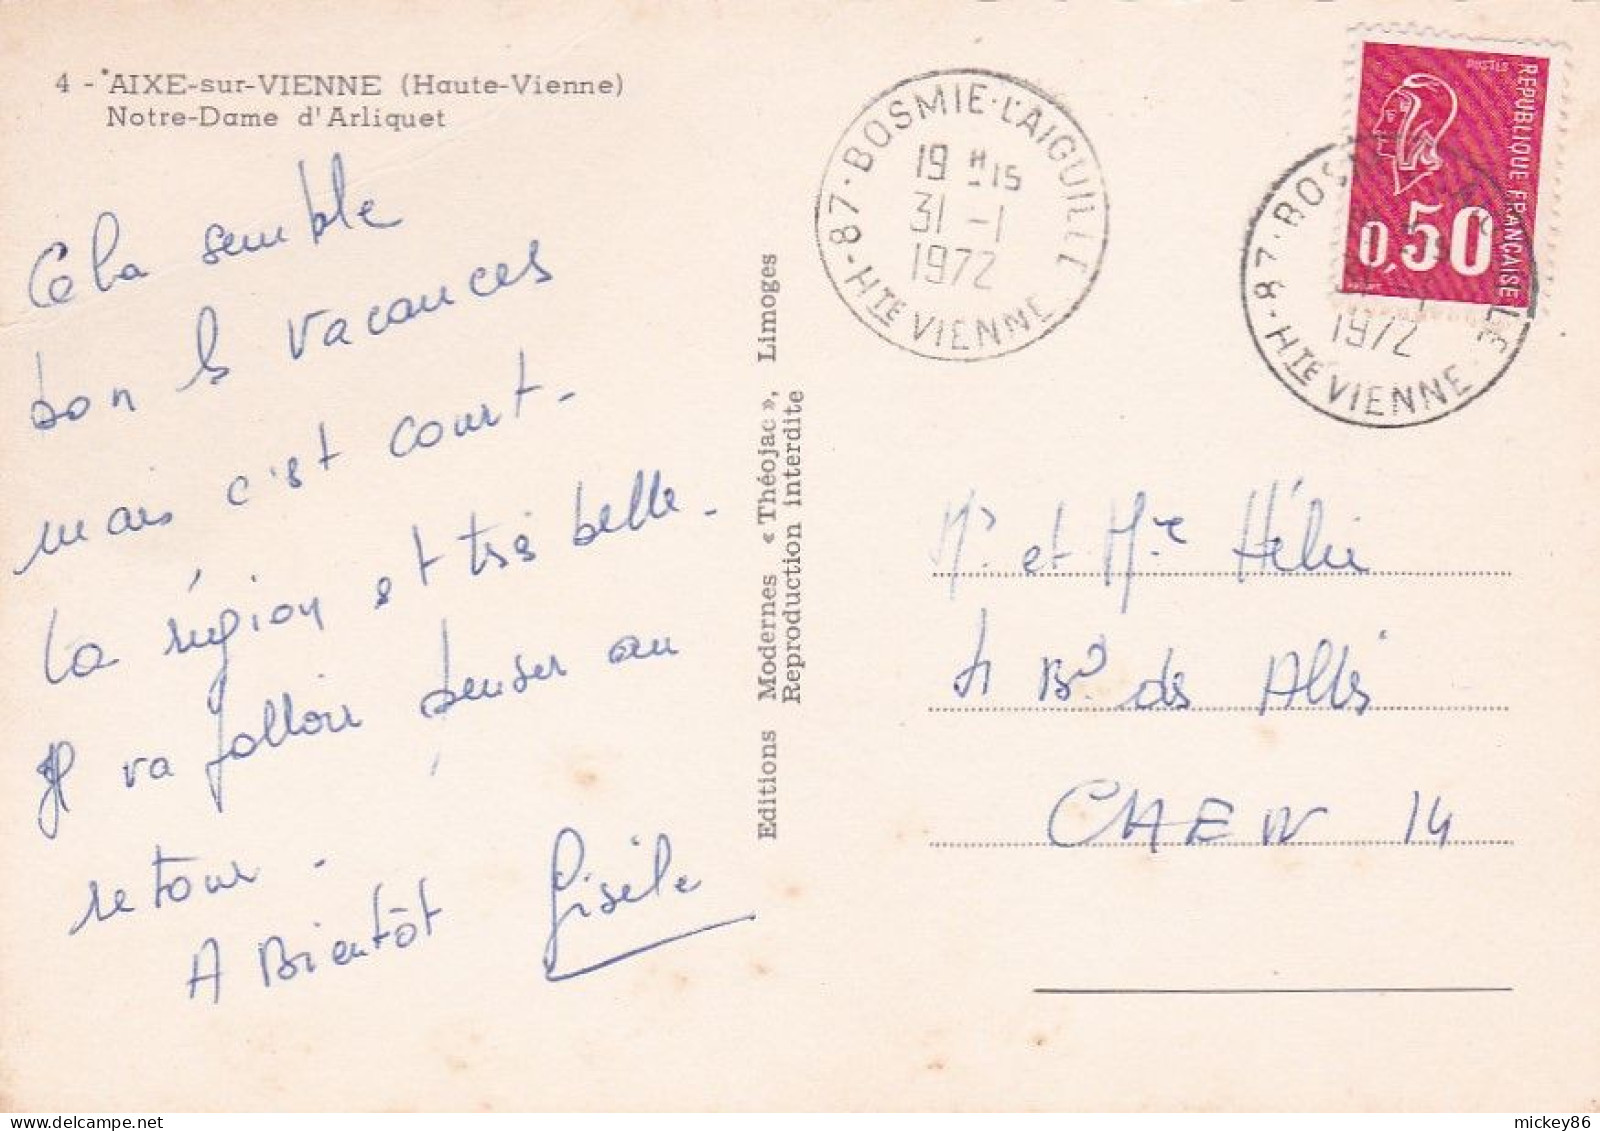 4 - AIXE-sur-VIENNE (Haute-Vienne)
Notre-Dame d'Arliquet
Cela semble
bon ls vacances
mais c'est court -
La région et très belle -
Il va falloir penser au
retour -
A Bientôt Gisèle
Editions Modernes « Théojac », Limoges
Reproduction interdite
87 - BOSMIE-L'AIGUILLE
19 H 15
31 - 1
1972
Hte VIENNE
POSTES
REPUBLIQUE FRANÇAISE
0,50
87 - BOSMIE
1972
Hte VIENNE
Mr et Mme Hélie
Bd des Alliés
CAEN 14
mickey86